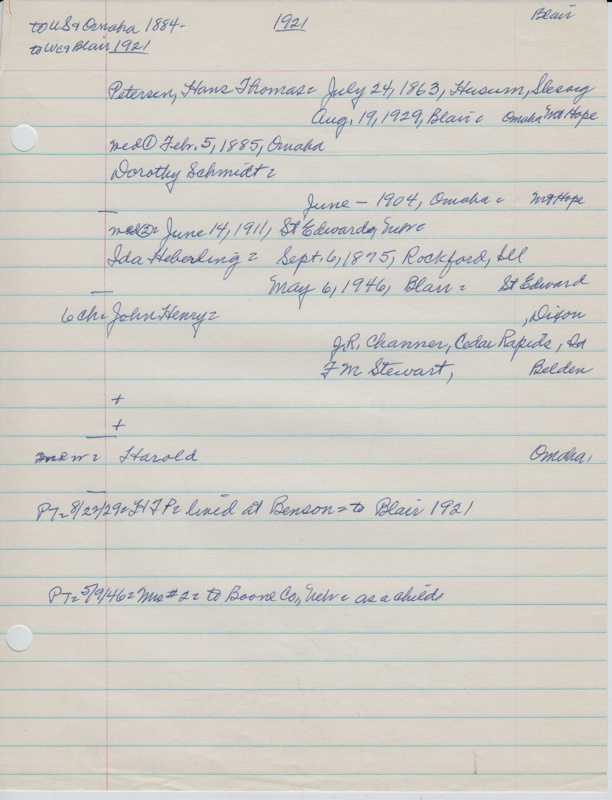 to US & Omaha 1884-
1921
Blair
to WC & Blair 1921
Petersen, Hans Thomas = July 24, 1863, Husum, Slesvig
Aug. 19, 1929, Blair = Omaha Mt Hope
med ① Feb. 5, 1885, Omaha
Dorothy Schmidt =
June - 1904, Omaha = Mt Hope
med ② = June 14, 1911, St Edwards, Neb =
Ida Heberling = Sept. 6, 1875, Rockford, Ill
May 6, 1946, Blair = St Edward
6 ch = John Henry = , Dixon
J.R. Channer, Cedar Rapids, Ia
F M Stewart, Belden
+
+
w = Harold Omaha,
PT = 8/22/29 = HTP = lived at Benson = to Blair 1921
PT = 5/9/46 = Mrs #2 = to Boone Co, Neb = as a child